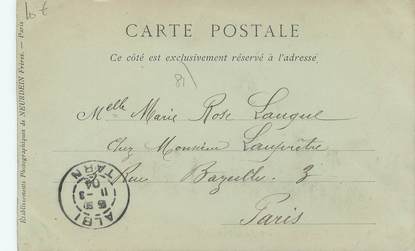 10 €
CARTE POSTALE
Ce côté est exclusivement réservé à l'adresse
Melle Marie Rose Langue
Chez Monsieur
Rue 3
Paris
ALBI
TARN
15 30
11 - 3
04
Etablissements Photographiques de NEURDEIN Frères. — Paris